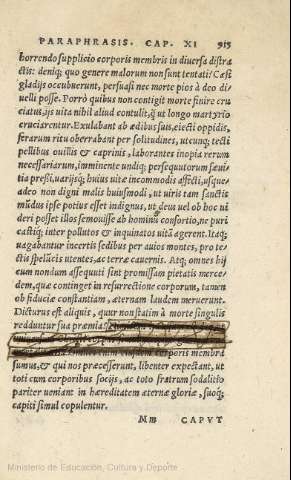 PARAPHRASIS. CAP. XI 915
horrendo supplicio corporis membris in diuersa distra
ctis: deniq; quo genere malorum non sunt tentati? Cæsi
gladijs occubuerunt, persuasi nec morte pios à deo di
uelli posse. Porrò quibus non contigit morte finire cru
ciatus, ijs uita nihil aliud contulit, q̃ ut longo martyrio
cruciarentur. Exulabant ab ædibus suis, eiecti oppidis,
ferarum ritu oberrabant per solitudines, utcunq; tecti
pellibus ouillis & caprinis, laborantes inopia rerum
necessariarum, imminente undiq; persequutorum sæui-
tia pressi, uarijsq́; huius uitæ incommodis afflicti, usque
adeo non digni malis huiusmodi, ut uiris tam sanctis
mũdus ipse potius esset indignus, ut deus uel ob hoc ui
deri posset illos semouisse ab hominũ consortio, ne puri
castiq́; inter pollutos & inquinatos uitã agerent. Itaq;
uagabantur incertis sedibus per auios montes, pro te-
ctis spelũcis utentes, ac terræ cauernis. Atq; omnes hij
cum nondum assequuti sint promissam pietatis merce-
dem, quæ continget in resurrectione corporum, tamen
ob fiduciæ constantiam, æternam laudem meruerunt.
Dicturus est aliquis, quur non statim à morte singulis
redduntur sua præmia?
corporis membra
sumus, & qui nos præcesserunt, libenter expectant, ut
toti cum corporibus socijs, ac toto fratrum sodalitio
pariter ueniant in hæreditatem æternæ gloriæ, suoq́;
capiti simul copulentur.
Mm CAPVT
Ministerio de Educación, Cultura y Deporte